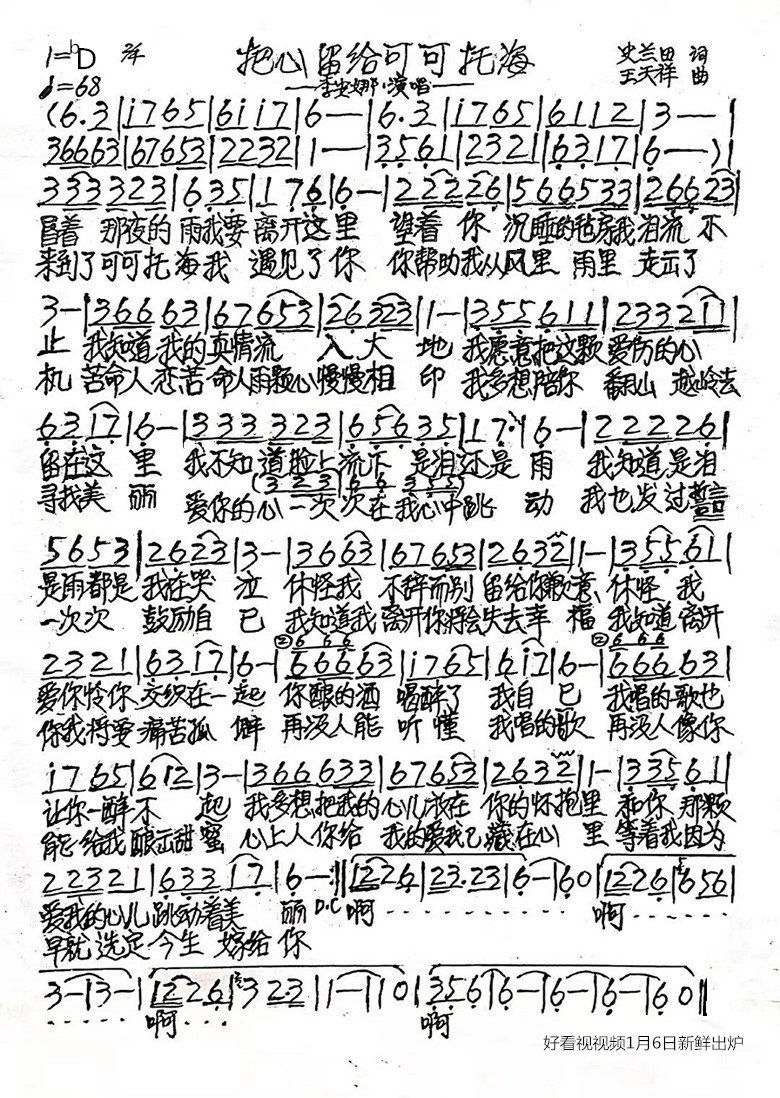 1=bD 2/4 把心留给可可托海 史兰田 词
♩=68 ——李安娜·演唱—— 王天祥 曲
(6.3|i765|6i17|6——|6.3|i765|6112|3——|
36663|67653|2232|1——|3561|2321|6317|6——)|
333323|635|176|6—|222226|566533|26623|
冒着 那夜的 雨我要 离开这里 望着 你 沉睡的毡房我泪流 不
来到了可可托海我 遇见了你 你帮助我从风里 雨里 走出了
3—|36663|67653|26323|1—|355611|233211|
止 我知道我的真情流 入大 地 我愿意把这颗 爱伤的心
机 苦命人恋苦命人雨颗心慢慢相 印 我多想陪你 翻山 越岭去
6317|6—|333323|65635|17·|6—|222226|
留在这 里 我不知道脸上流下 是泪还是 雨 我知道是泪
(323 663 55)
寻找美 丽 爱你的心一次次在我心中跳 动 我也发过誓言
5653|2623|3—|3663|67653|2632|1—|35561|
是雨都是 我在哭 泣 休怪我 不辞而别 留给你歉意 休怪 我
一次次 鼓励自 己 我知道我 离开你将会失去幸 福 我知道离开
②666 ②666
2321|6317|6—|66663|i765|6i7|6—|66663|
爱你怜你 交织在一起 你酿的酒 喝醉了 我自 己 我唱的歌也
你我将受 痛苦孤 僻 再没人能 听懂 我唱的歌 再没人像你
i765|612|3—|366633|67653|2632|1—|33561|
让你一醉不 起 我多想把我的心儿放在 你的怀抱里 和你 那颗
能给我酿出甜蜜 心上人你给 我的爱我已藏在心 里 等着我因为
22321|63317|6—:‖1226|23·23|6—|60|1226|656|
爱我的心儿跳动着美 丽 D.C 啊........... 啊......
早就选定今生 嫁给 你
3—|3—|1226|32·3|1—|10|356|6—|6—|6—|60‖
...... 啊.... 啊
好看视视频1月6日新鲜出炉